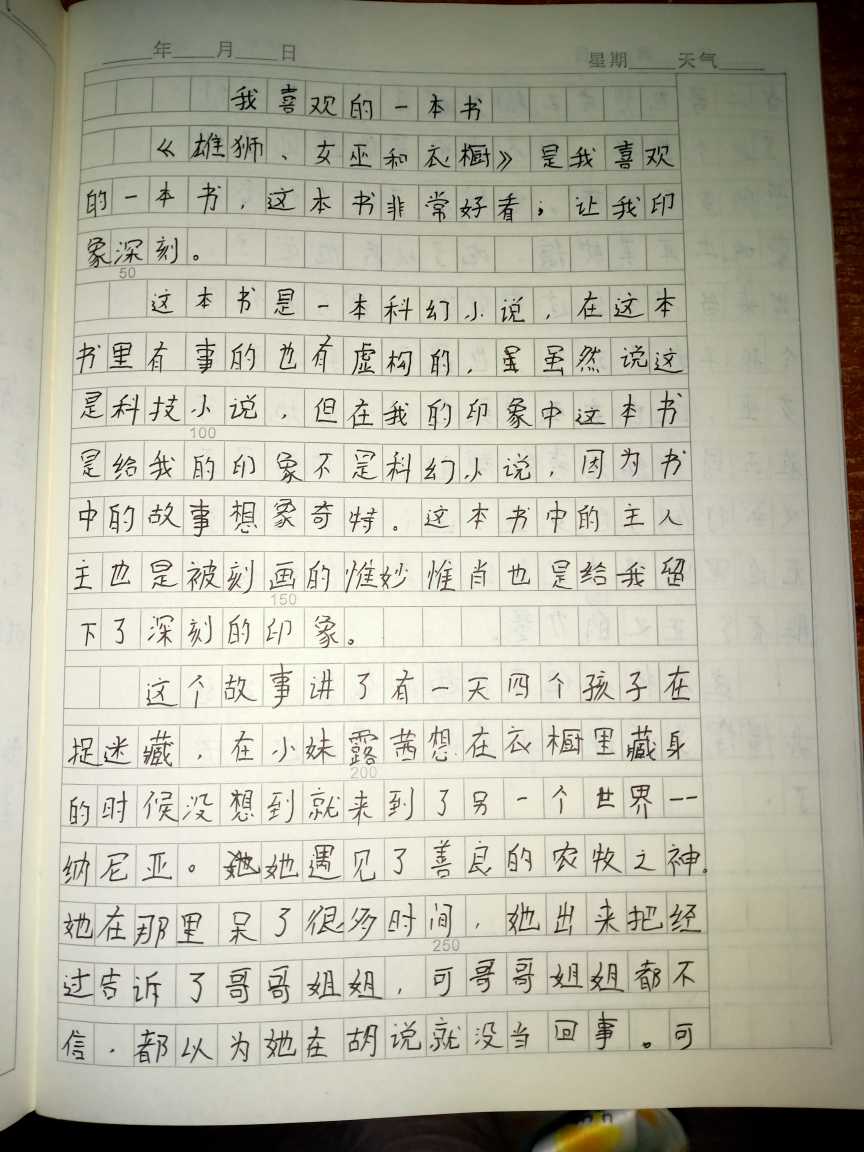 年 月 日 星期 天气
我喜欢的一本书
《雄狮、女巫和衣橱》是我喜欢
的一本书，这本书非常好看；让我印
象深刻。
50
这本书是一本科幻小说，在这本
书里有事的也有虚构的，虽虽然说这
是科技小说，但在我的印象中这本书
100
是给我的印象不是科幻小说，因为书
中的故事想象奇特。这本书中的主人
主也是被刻画的惟妙惟肖也是给我留
150
下了深刻的印象。
这个故事讲了有一天四个孩子在
捉迷藏，在小妹露茜想在衣橱里藏身
200
的时候没想到就来到了另一个世界一一
纳尼亚。她她遇见了善良的农牧之神。
她在那里呆了很多时间，她出来把经
250
过告诉了哥哥姐姐，可哥哥姐姐都不
信，都以为她在胡说就没当回事。可